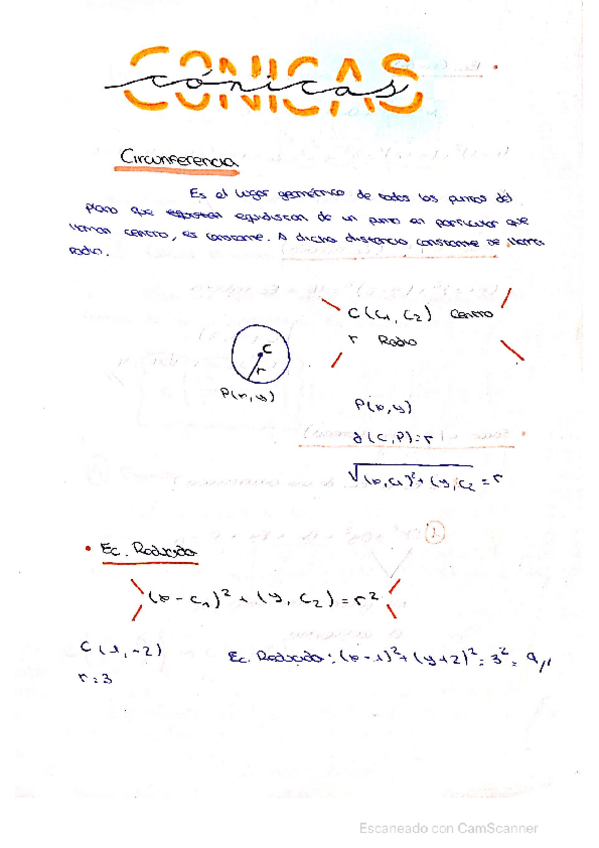 CÓNICAS
cónicas
Circunferencia
Es el lugar geométrico de todos los puntos del
plano que equidistan de un punto en particular que
llaman centro, es constante. A dicha distancia constante se llama
radio.
C(C₁, C₂) Centro
r Radio
C
r
P(x,y)
P(x,y)
d(C,P)=r
√(x,C₁)²+(y,C₂ = r
• Ec. Reducida
(x-C₁)²+(y, C₂)=r²
C(1,-2)
Ec. Reducida: (x-1)²+(y+2)²=3²=9//
r=3
Escaneado con CamScanner